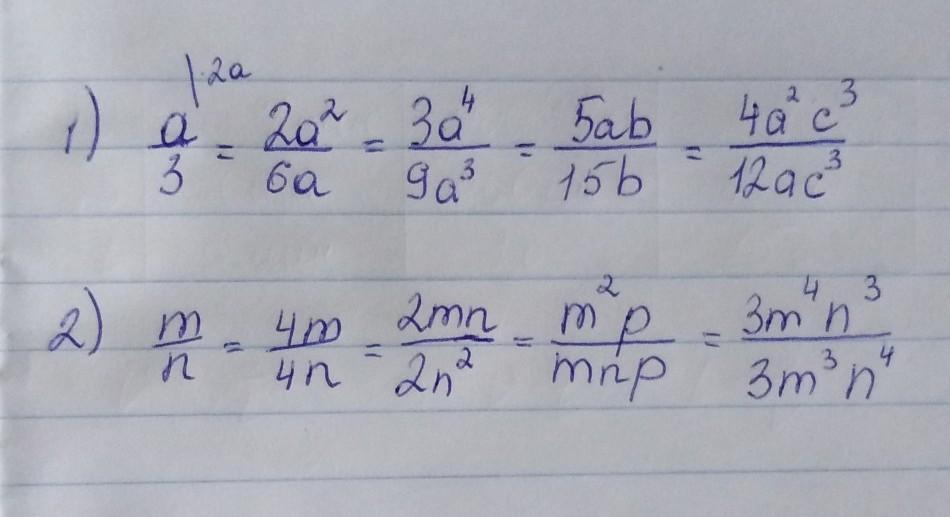 1) a/3 |·2a = 2a²/6a = 3a⁴/9a³ = 5ab/15b = 4a²c³/12ac³
2) m/n = 4m/4n = 2mn/2n² = m²p/mnp = 3m⁴n³/3m³n⁴